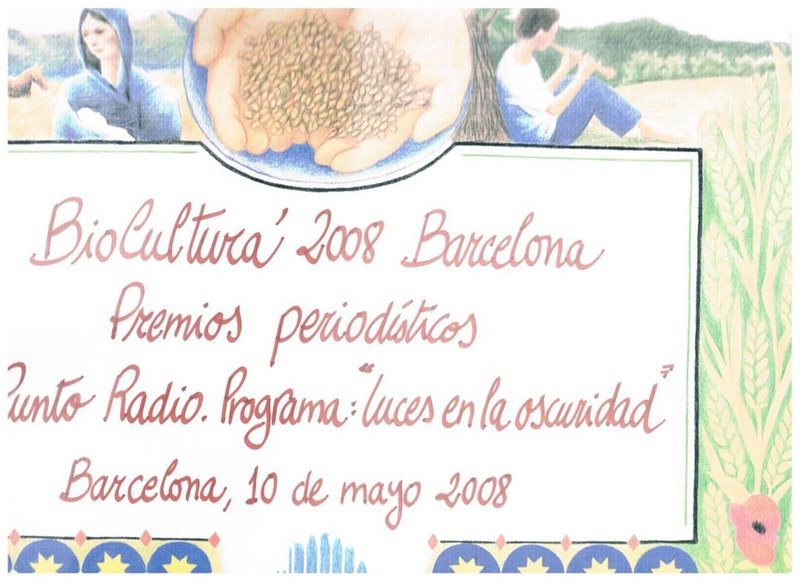 BioCultura' 2008 Barcelona
Premios periodísticos
Punto Radio. Programa: "luces en la oscuridad"
Barcelona, 10 de mayo 2008